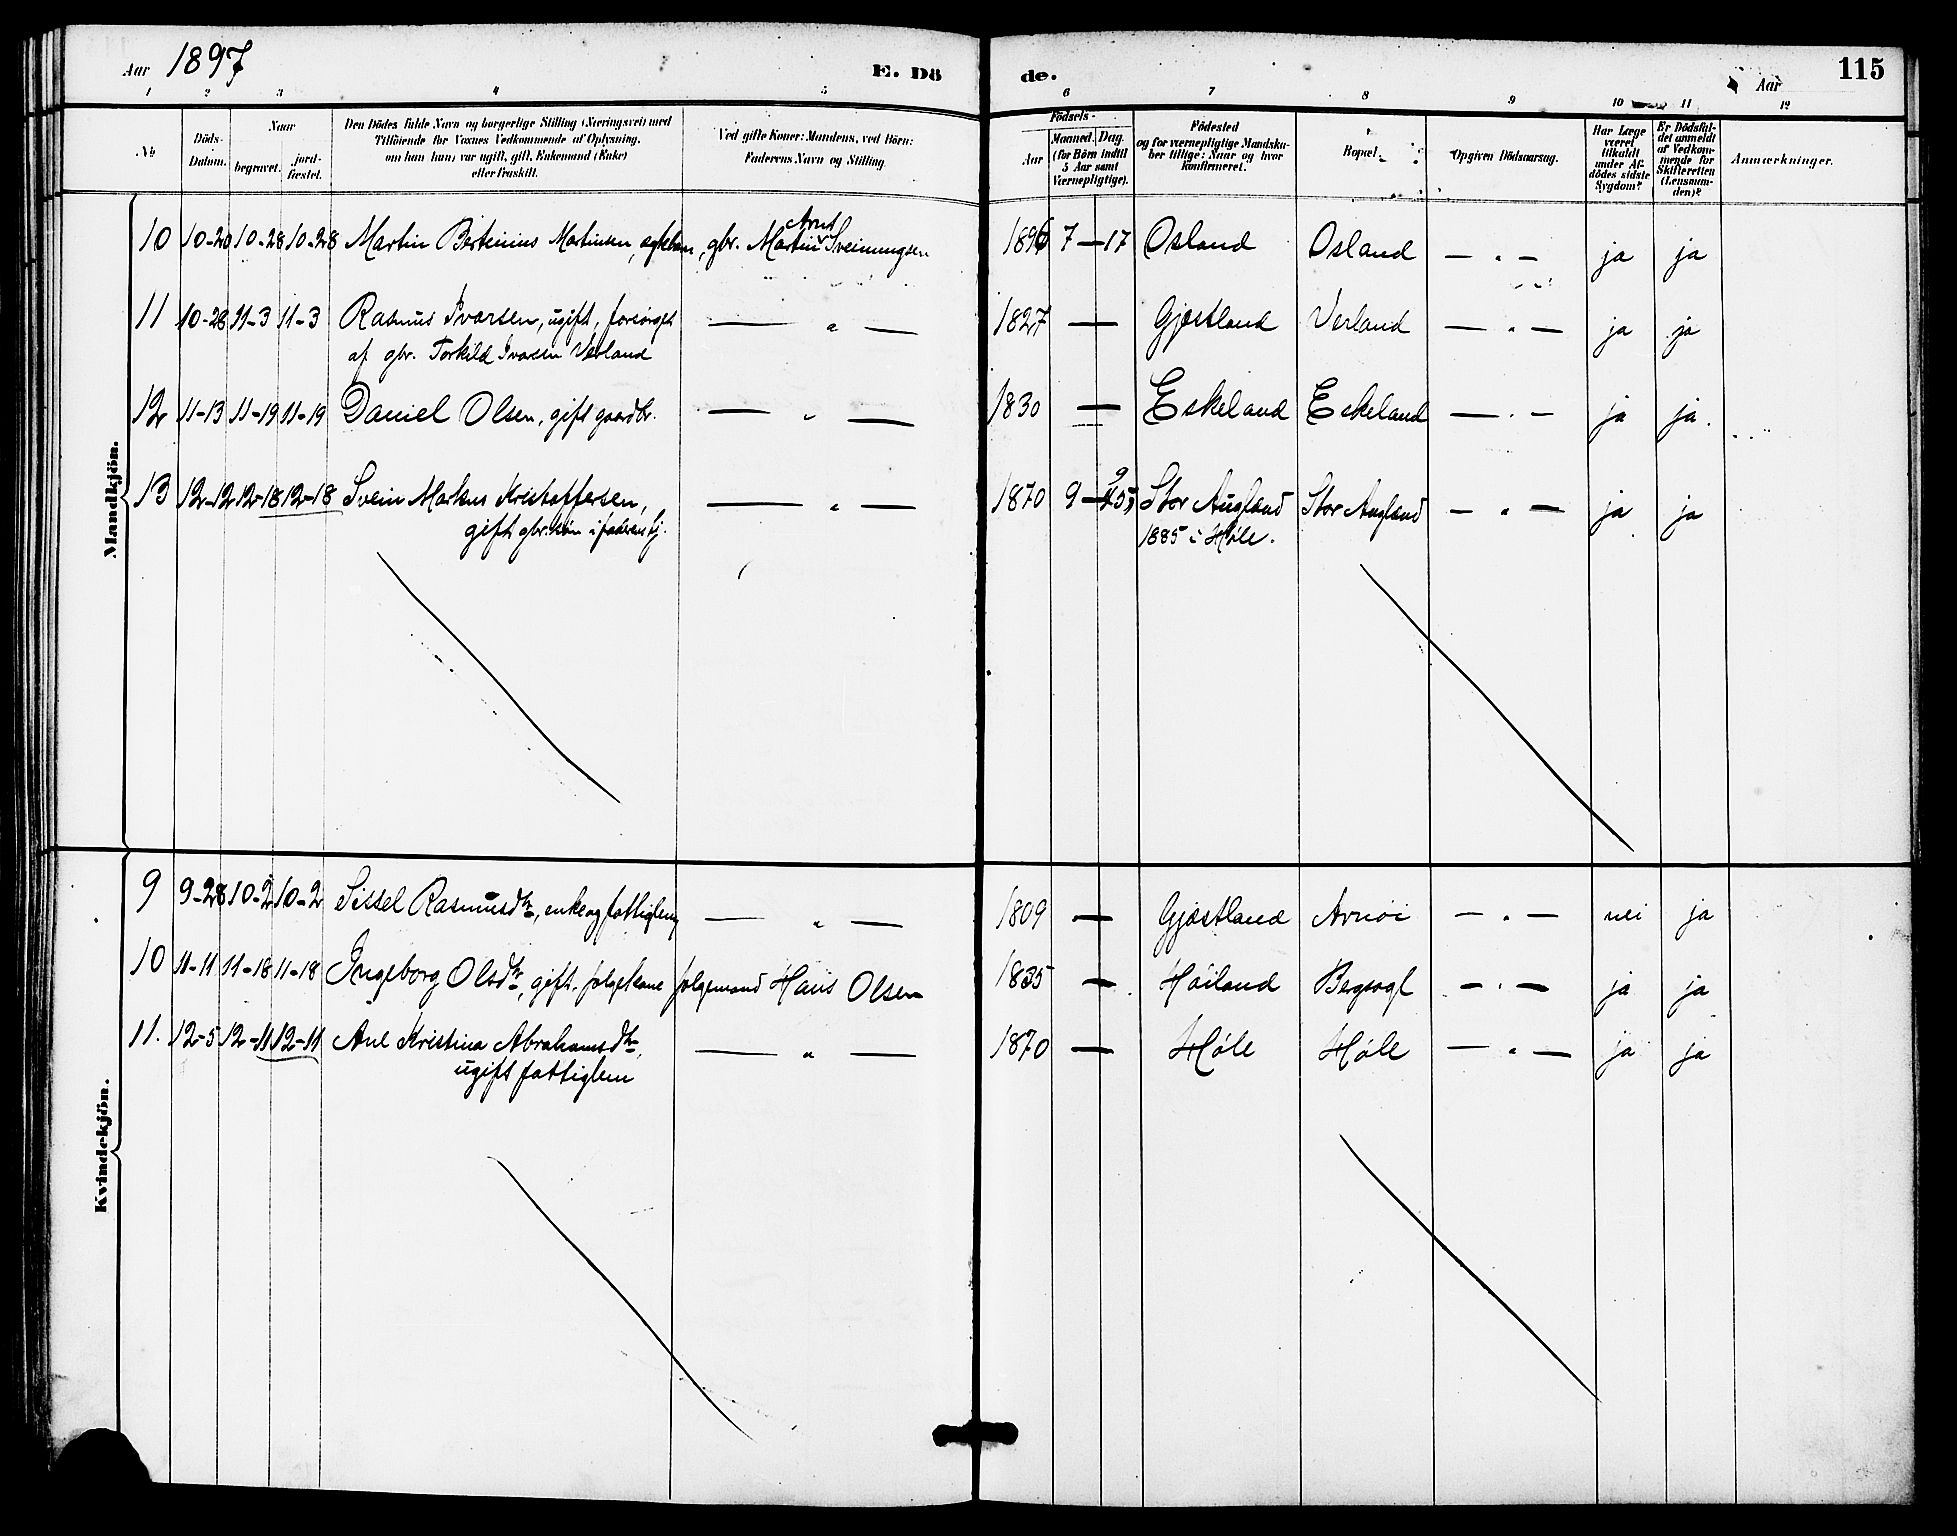 Aar 1897 E. Dö de. Aar 115
1 2 3 4 5 6 7 8 9 10 11 12
№ Döds-Datum. Naar begravet. jordfæstet. Den Dödes fulde Navn og borgerlige Stilling (Næringsvei) med Tilföiende for Voxnes Vedkommende af Oplysning, om han (hun) var ugift, gift, Enkemand (Enke) eller fraskilt. Ved gifte Koner: Mandens, ved Börn: Faderens Navn og Stilling. Födsels- Aar Maaned. Dag. (for Börn indtil 5 Aar samt Værnepligtige). Födested og for værnepligtige Mandskaber tillige: Naar og hvor konfirmeret. Bopæl. Opgiven Dödsaarsag. Har Læge været tilkaldt under Afdödes sidste Sygdom? Er Dödsfaldet anmeldt af Vedkommende for Skifteretten (Lensmanden)? Anmærkninger.
Mandkjön.
Arnt
10 10-20 10-28 10-28 Martin Bertinius Martinsen, ægteb, gbr. Martin Sveinungsen 1896 7 — 17 Osland Osland — " — ja ja
11 10-28 11-3 11-3 Rasmus Ivarsen, ugift, forsørget — " — 1827 — Gjestland Verland — " — ja ja
af gbr. Torkild Ivarsen Verland
12 11-13 11-19 11-19 Daniel Olsen, gift gaardbr. — " — 1830 — Eskeland Eskeland — " — ja ja.
9
13 12-12 12-18 12-18 Svein Markus Kristoffersen, — " — 1870 9 — Stor Augland Stor Augland — " — ja ja
gift gbr. søn i 1885 i Høle.
Kvindekjön.
9 9-28 10-2 10-2 Sissel Rasmusdtr, enke og fattiglem — " — 1809 — Gjæstland Arnøi — " — nei ja
10 11-11 11-18 11-18 Ingeborg Olsdtr, gift. folgekone folgemand Hans Olsen 1835 — Høiland Bergsagl — " — ja ja
11. 12-5 12-11 12-11 Ane Kristina Abrahamsdtr, — " — 1870 — Høle Høle — " — ja ja
ugift fattiglem